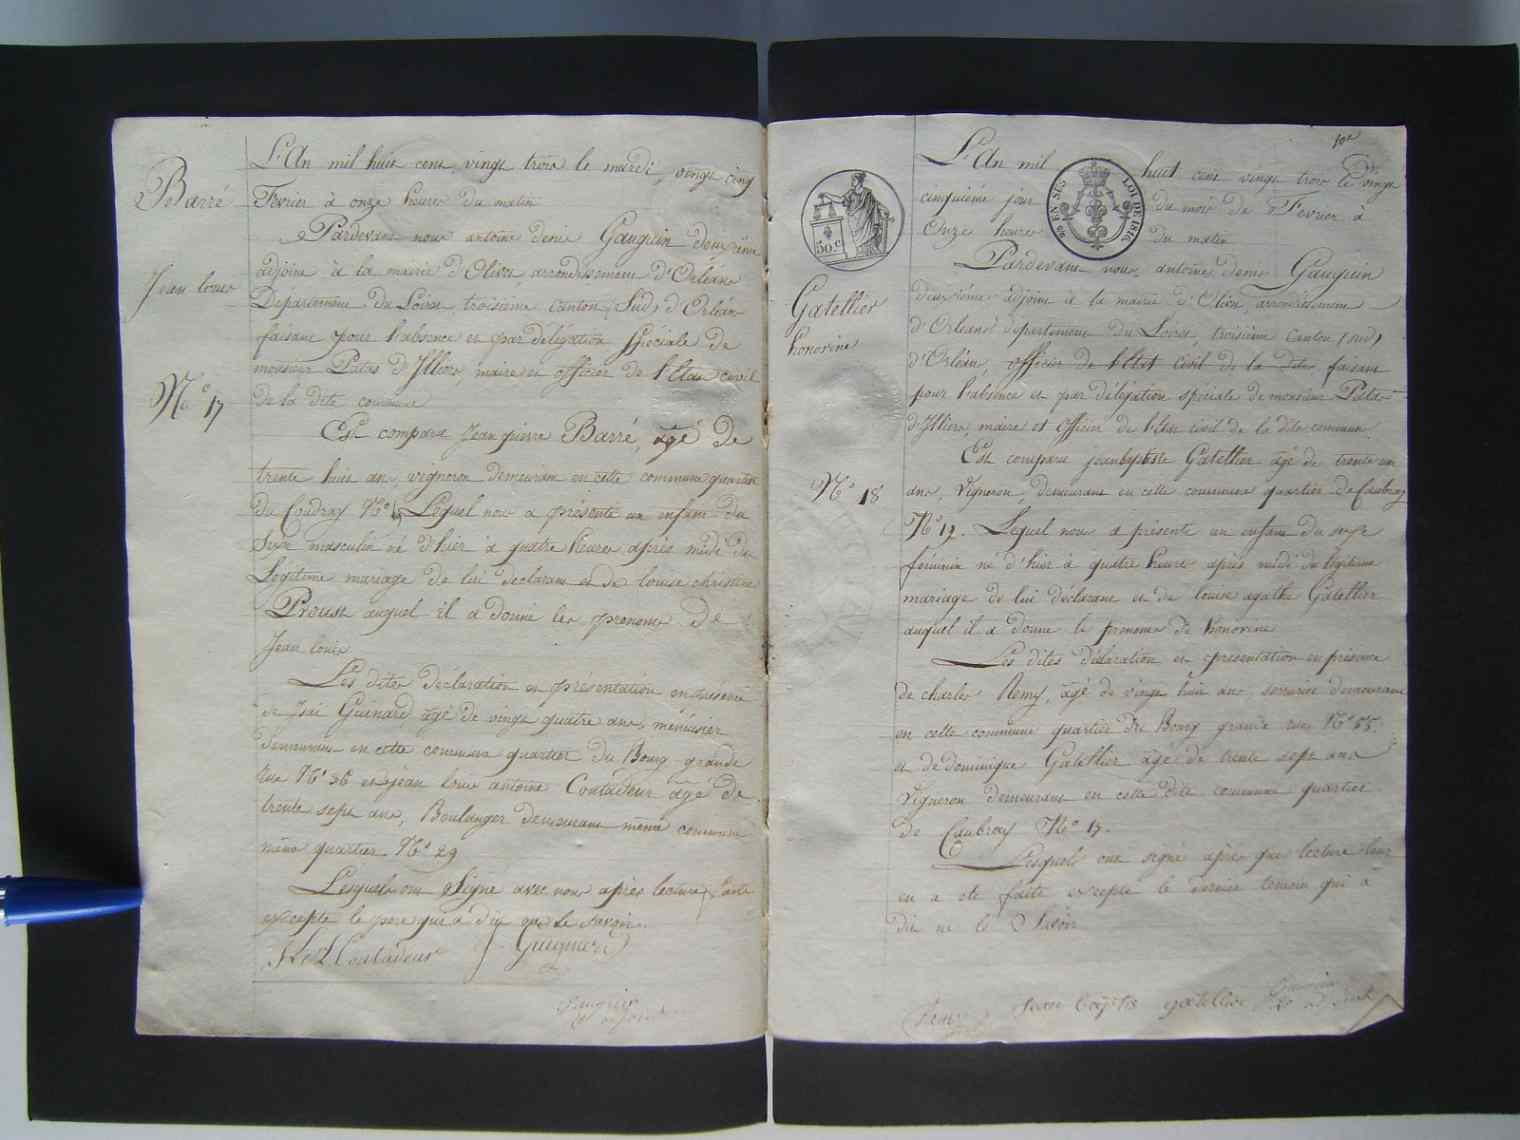 Barré
Jean louis
N.o 17
L'An mil huit cent vingt trois le mardi, vingt cinq
Fevrier à onze heures du matin
Pardevant nous antoine denis Gauguin deuxième
adjoint à la mairie d'Olivet, arrondissement d'Orléans
Département du Loiret, troisième canton (Sud) d'Orléans
faisant pour l'absence et par délégation spéciale de
monsieur Patas d'Illiers, maire et officier de l'Etat civil
de la dite commune
Est comparu Jean pierre Barré, agé de
trente huit ans, vigneron demeurant en cette commune quartier
du Coudray N.o Lequel nous a présenté un enfant du
Sexe masculin né d'hier à quatre heures après midi du
Legitime mariage de lui declarant et de louise christine
Proust auquel il a donné les prenoms de
Jean louis
Les dites déclaration et présentation en présence
de Guinard âgé de vingt quatre ans, menuisier
Demeurant en cette commune quartier du Bourg grande
rue N.o 36 et jean louis antoine Contadeur âgé de
trente sept ans, Boulanger demeurant même commune
même quartier N.o 29
Lesquels ont signé avec nous après lecture faite
excepté le pere qui a dit ne le savoir.
J L A Contadeur Guignard
Gauguin
adjoint
10e
L'An mil huit cent vingt trois le vingt
cinquième jour du mois de Fevrier à
Onze heures du matin
50.c
EN SUS LOI DE 1816
Gatellier
honorine
N.o 18
Pardevant nous, antoine denis Gauguin
deuxième adjoint à la mairie d'Olivet, arrondissement
d'Orléans département du Loiret, troisième canton (sud)
d'Orléans, officier de l'Etat civil de la dite faisant
pour l'absence et par délégation spéciale de monsieur Patas
d'Illiers, maire et officier de l'Etat civil de la dite commune
Est comparu jeanbaptiste Gatellier agé de trente un
ans, Vigneron, demeurant en cette commune quartier de Caubray
N.o 17. Lequel nous a présenté un enfant du sexe
féminin né d'hier à quatre heures après midi du légitime
mariage de lui déclarant et de louise agathe Gatellier
auquel il a donné le prenoms de honorine
Les dites déclaration et présentation en présence
de charles Remy, agé de vingt huit ans, serrurier demeurant
en cette commune quartier du Bourg grande rue N.o 55.
et de dominique Gatellier agé de trente sept ans
Vigneron demeurant en cette dite commune quartier
de Caubray N.o 17.
Lesquels ont signé après que lecture leur
en a été faite excepté le dernier temoin qui a
dit ne le Savoir
Remy Jean Baptis gatellier Gauguin
adjoint